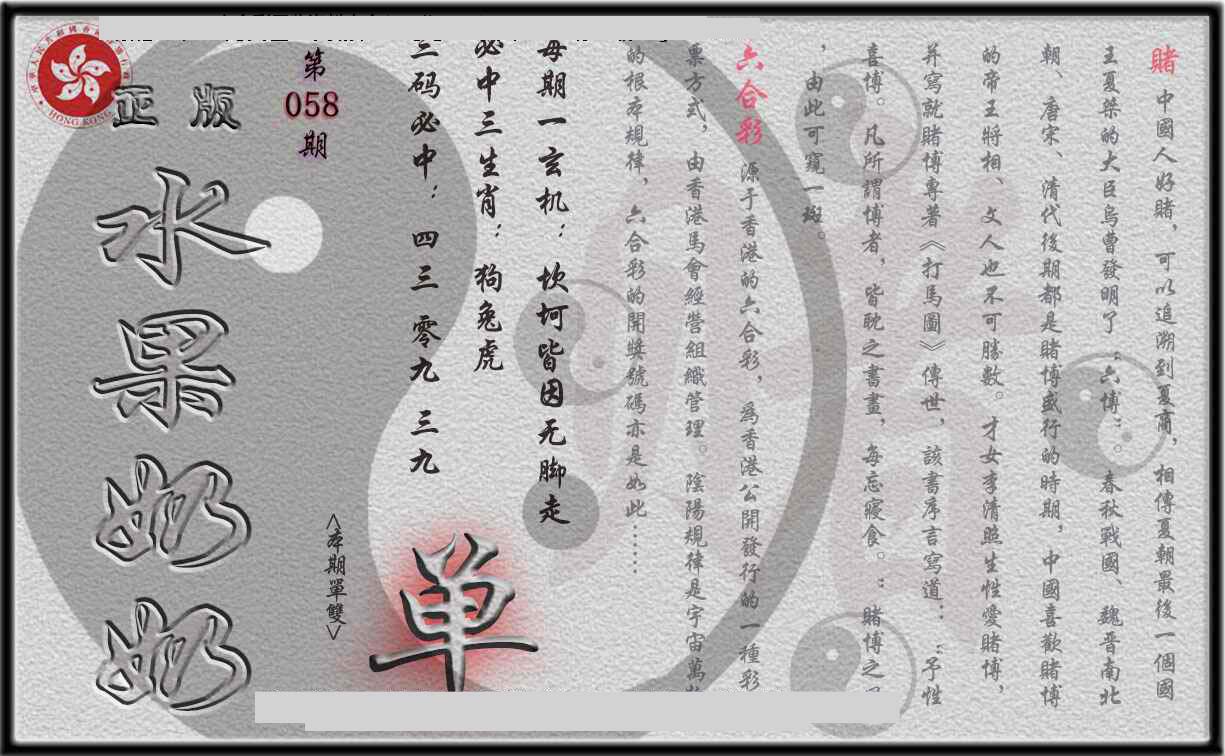 正版
水果奶奶
第
058
期
<本期單雙>
单
HONG KONG
賭 中國人好賭，可以追溯到夏商，相傳夏朝最後一個國
王夏桀的大臣烏曹發明了“六博”。春秋戰國、魏晋南北
朝、唐宋、清代後期都是賭博盛行的時期，中國喜歡賭博
的帝王將相、文人也不可勝數。才女李清照生性愛賭博，
并寫就賭博專著《打馬圖》傳世，該書序言寫道：“予性
喜博。凡所謂博者，皆耽之書畫，每忘寢食。”賭博之
，由此可窺一斑。
六合彩 源于香港的六合彩，為香港公開發行的一種彩
票方式，由香港馬會經營組織管理。陰陽規律是宇宙萬
的根本規律，六合彩的開獎號碼亦是如此……
每期一玄机：坎坷皆因无脚走
必中三生肖：狗兔虎
三码必中：四三 零九 三九